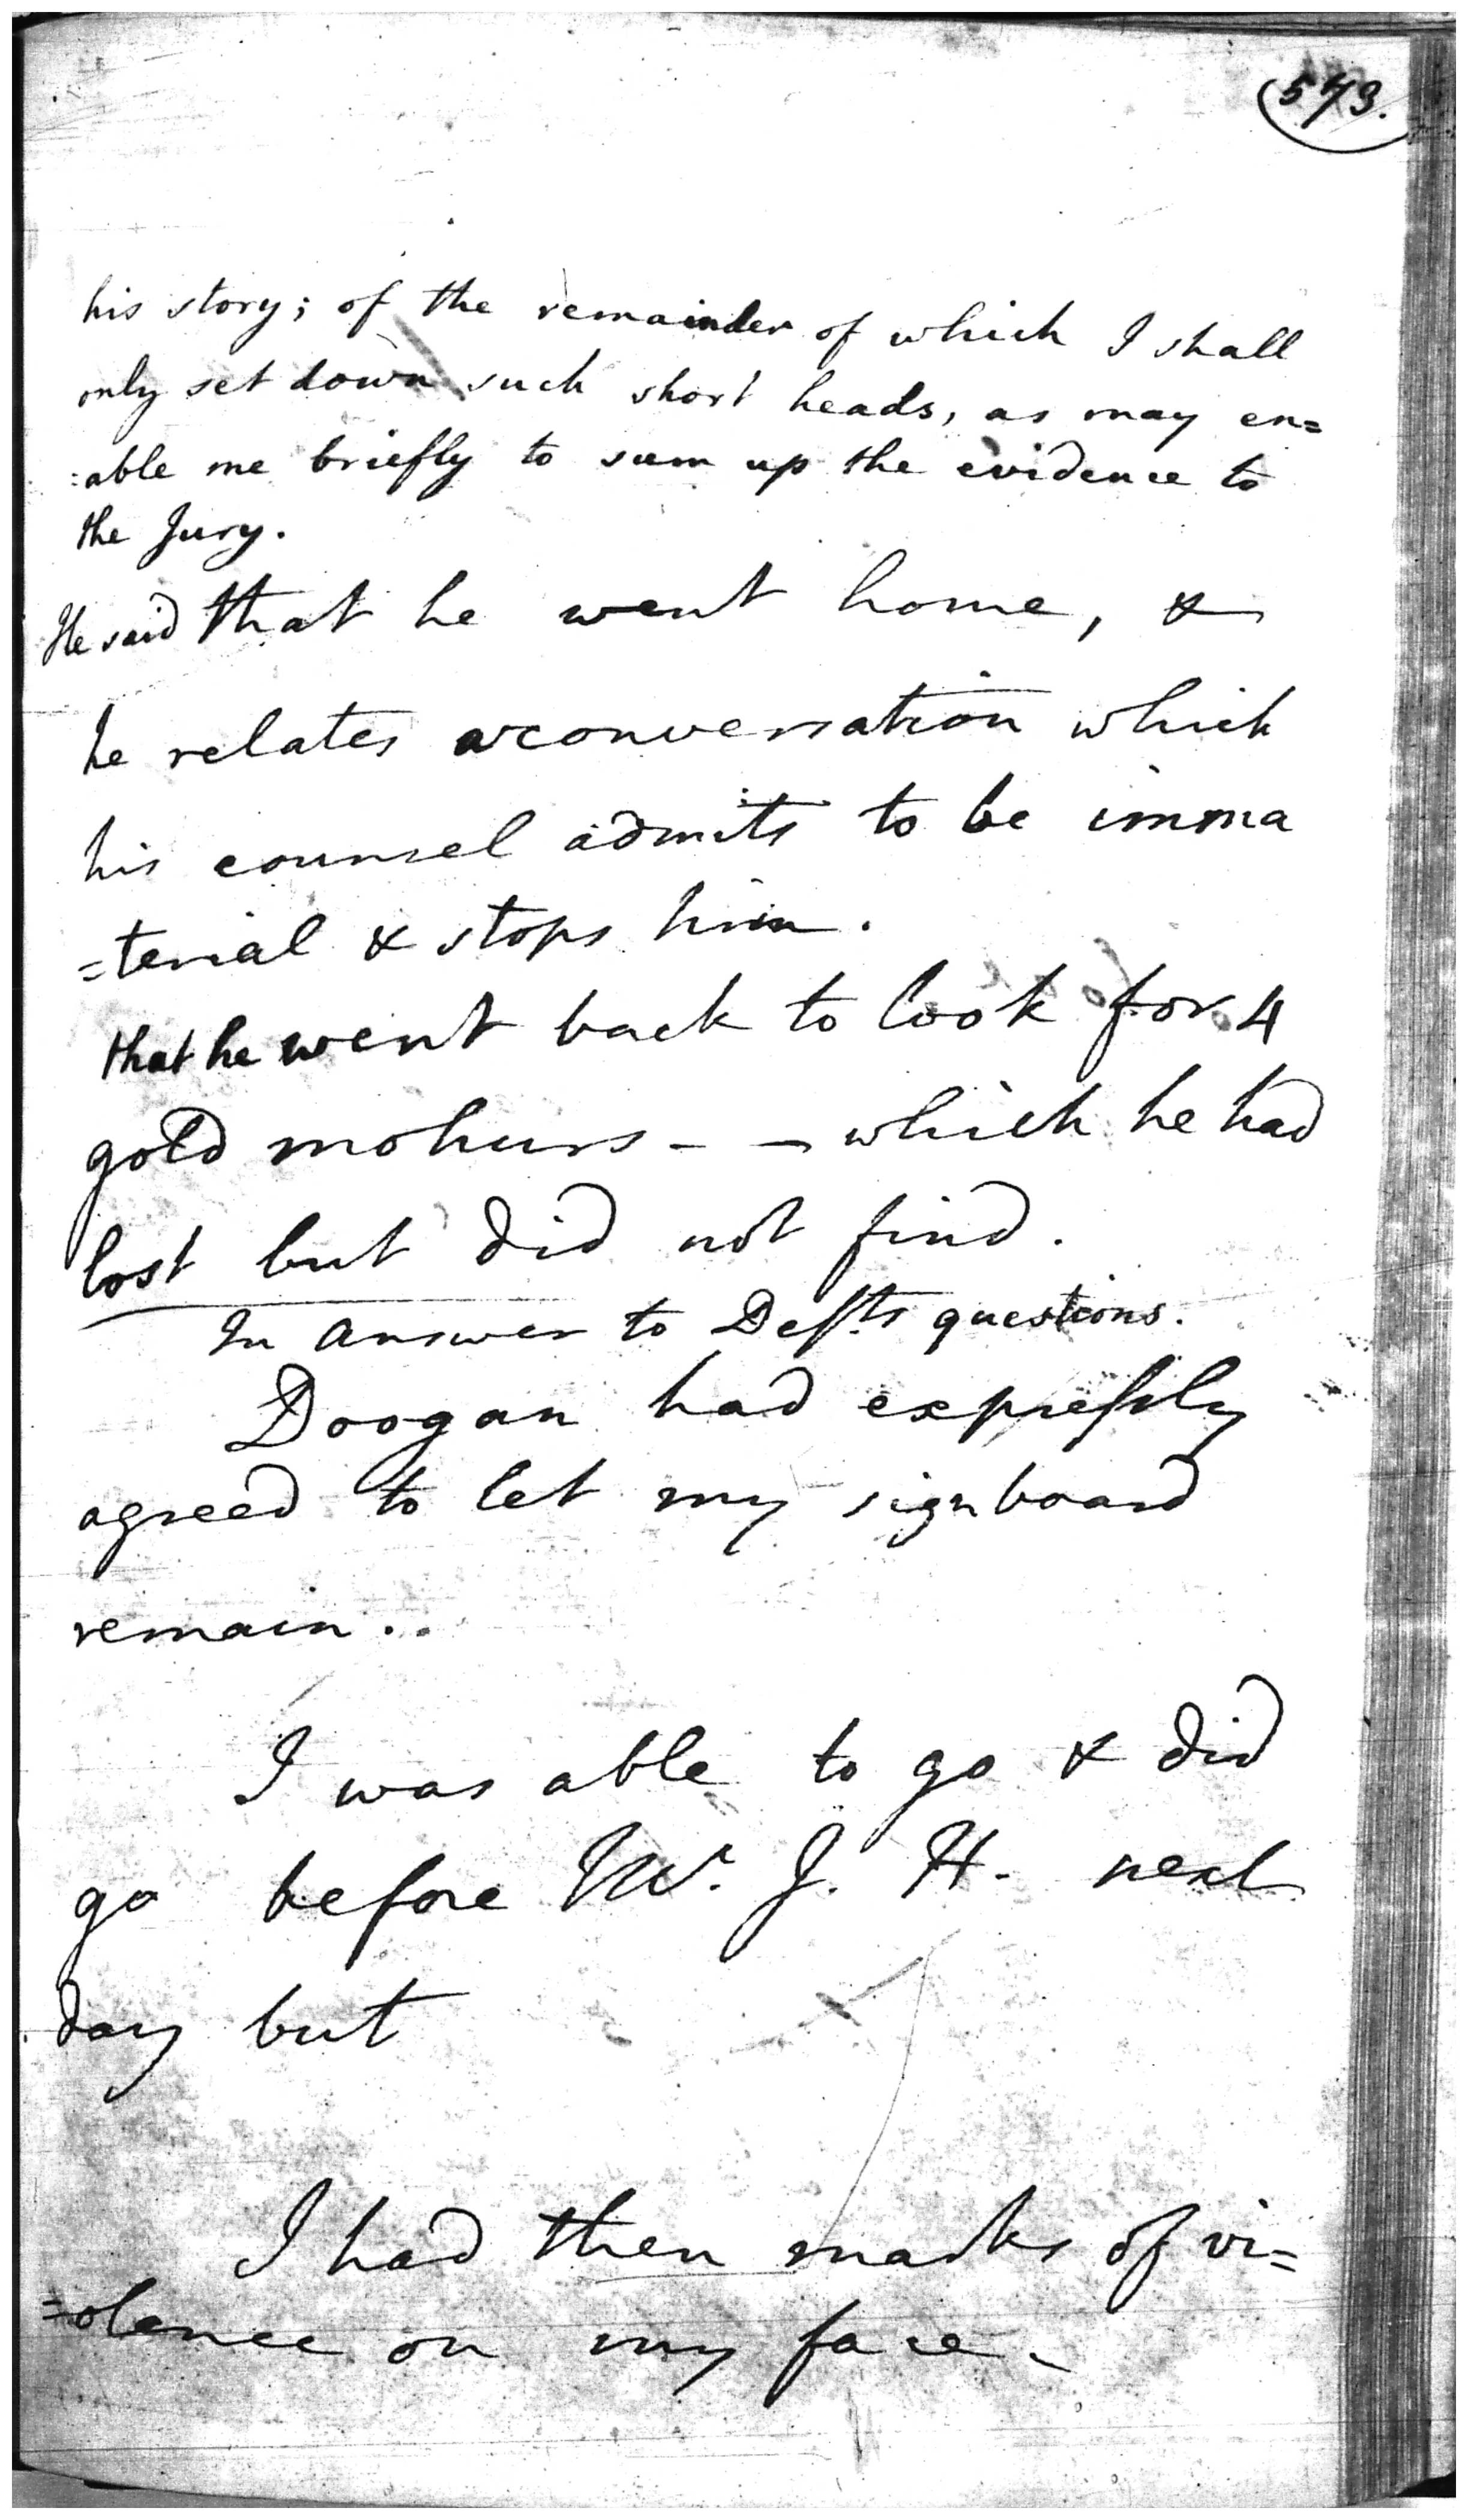 573.
his story; of the remainder of which I shall
only set down such short heads, as may en=
:able me briefly to sum up the evidence to
the Jury.
He said that he went home, &
he relates a conversation which
his counsel admits to be imma
=terial & stops him.
that he went back to look for 4
gold mohurs - - which he had
lost but did not find.
In answer to Defts questions.
Doogan had expressly
agreed to let my signboard
remain..
I was able to go & did
go before W. J. H. next
day but
I had then marks of vi=
=olence on my face.